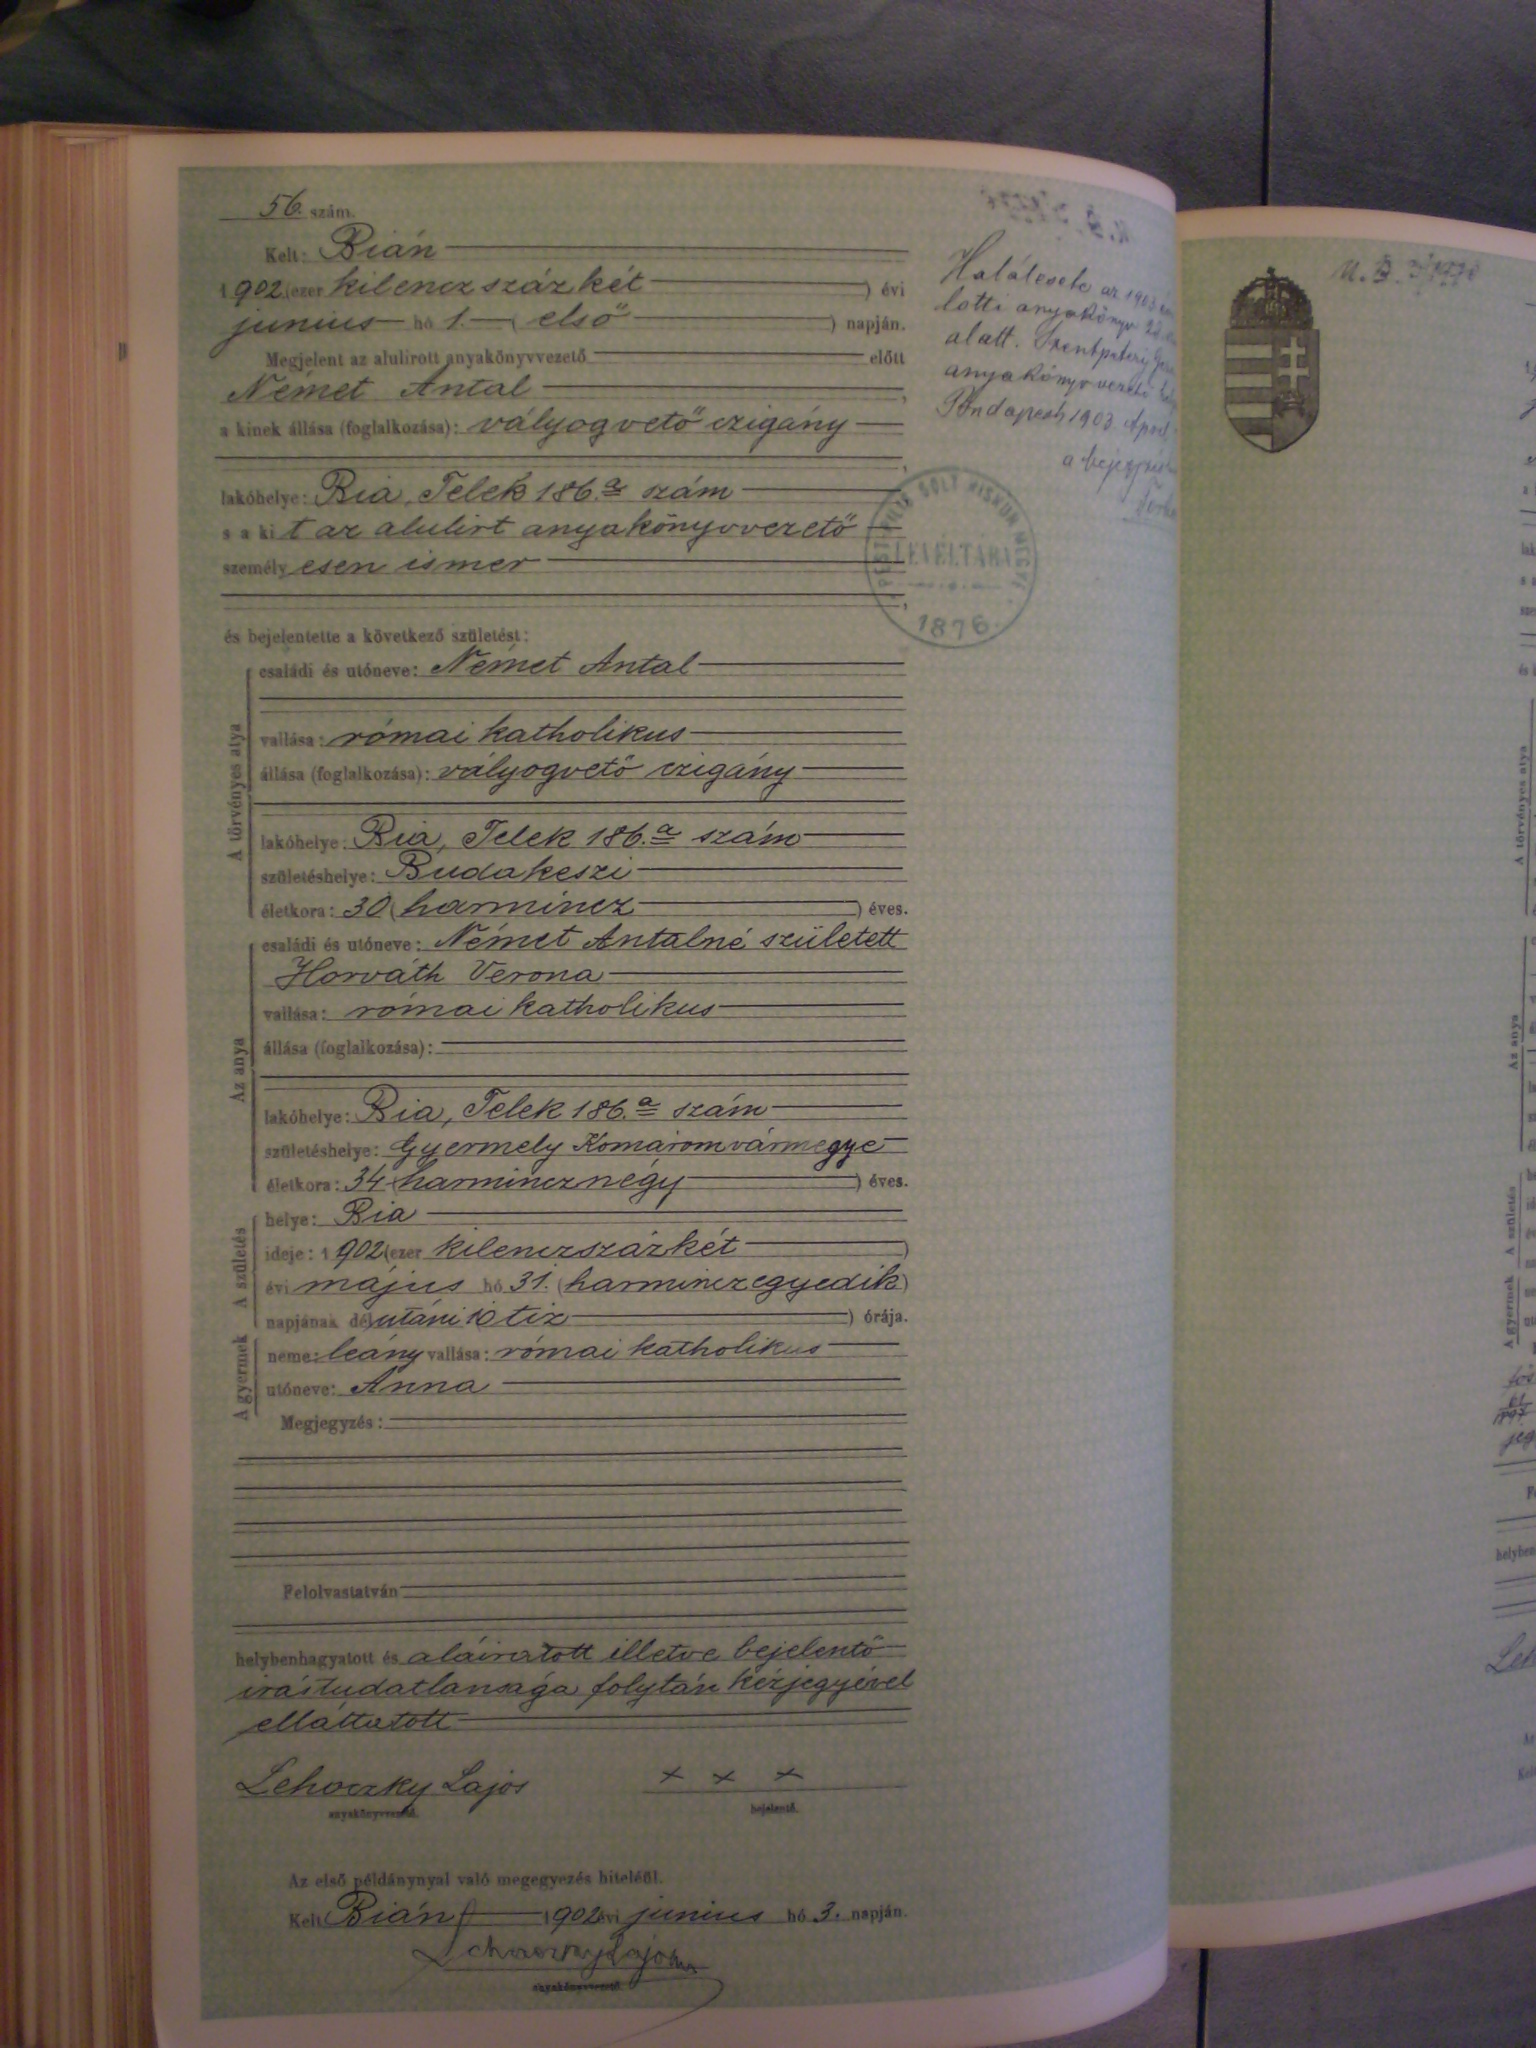 56. szám.
Kelt: Bián
1902 (ezer kilenczszázkét) évi
junius hó 1. (első) napján.
Megjelent az alulirott anyakönyvvezető előtt
Német Antal,
a kinek állása (foglalkozása): vályogvető czigány
lakóhelye: Bia, Telek 186.a szám
s a kit az alulirt anyakönyvvezető
személyesen ismer,
és bejelentette a következő születést:
A törvényes atya
családi és utóneve: Német Antal
vallása: római katholikus
állása (foglalkozása): vályogvető czigány
lakóhelye: Bia, Telek 186.a szám
születéshelye: Budakeszi
életkora: 30 (harmincz) éves.
Az anya
családi és utóneve: Német Antalné született
Horváth Verona
vallása: római katholikus
állása (foglalkozása):
lakóhelye: Bia, Telek 186.a szám
születéshelye: Gyermely Komáromvármegye
életkora: 34 (harmincznégy) éves.
A születés
helye: Bia
ideje: 1902 (ezer kilenczszázkét)
évi május hó 31. (harminczegyedik)
napjának délutáni 10 tiz) órája.
A gyermek
neme: leány vallása: római katholikus
utóneve: Anna
Megjegyzés:
Felolvastatván
helybenhagyatott és aláiratott illetve bejelentő
irástudatlansága folytán kézjegyével
elláttatott
Lehoczky Lajos
anyakönyvvezető.
+ + +
bejelentő.
Az első példánynyal való megegyezés hiteléül.
Kelt Bián 1902 évi junius hó 3. napján.
Lehoczky Lajos
anyakönyvvezető.
Halálesete az 1903
lotti anyakönyv
alatt. Szentpéteri
anyakönyvvezető
Budapest 1903. April
a bejegyzés
PEST PILIS SOLT KISKUN MEGYE
LEVÉLTÁRA
1876.
A törvényes atya
Az anya
A születés
A gyermek